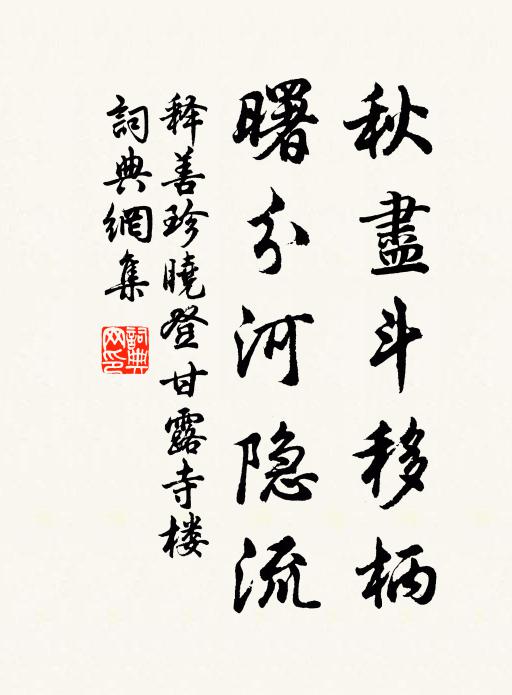 秋盡斗移柄
曙分河隐流
释善珍曉登甘露寺楼
詞典網集
詞典
网印